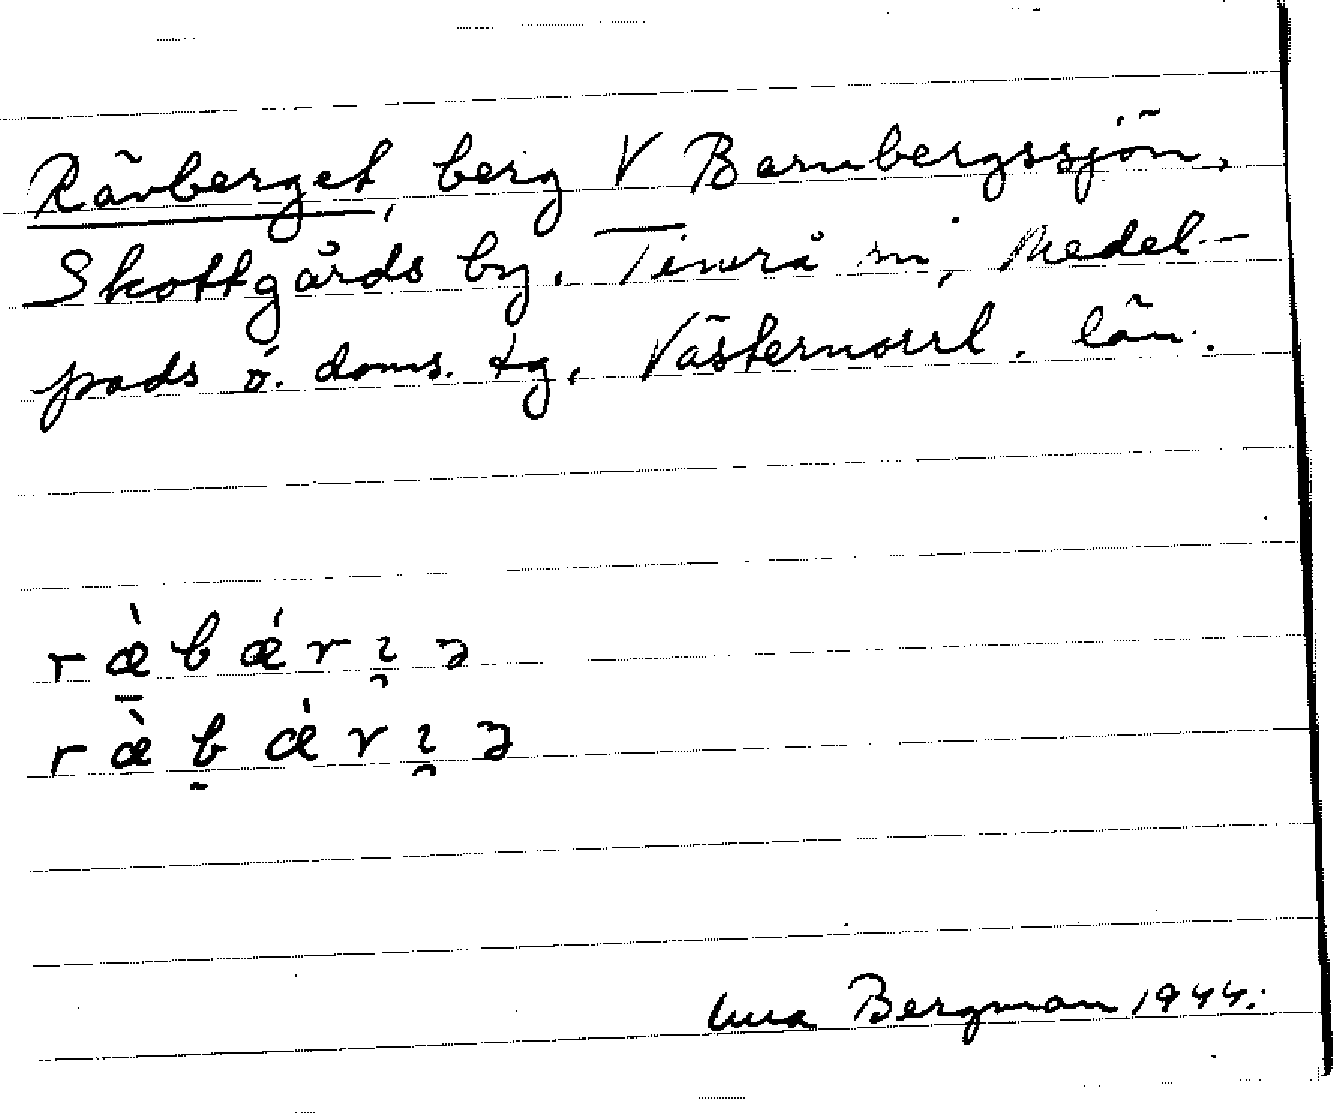 Rävberget, berg V Barnbergssjön,
Skottgårds by, Timrå sn, Medel-
pads ö. doms. tg, Västernorrl. län.
r æ̀ b ǽ r ꭋ ə
r æ̀ b ǽ r ꭋ ə
Bergman 1944.